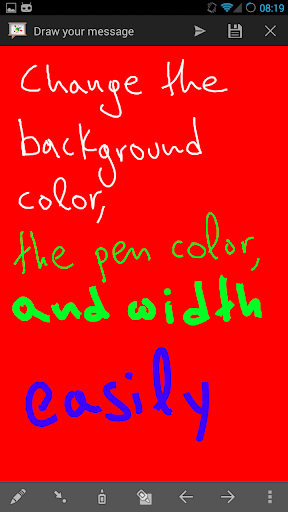 08:19
Draw your message
Change the
background
color,
the pen color,
and width
easily